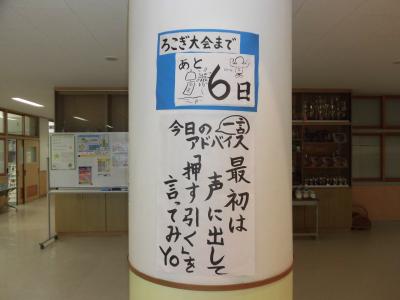 ろこぎ大会まで
あと
6日
今日の一言
アドバイス
最初は
声に出して
「押す引く」を
言ってみYO